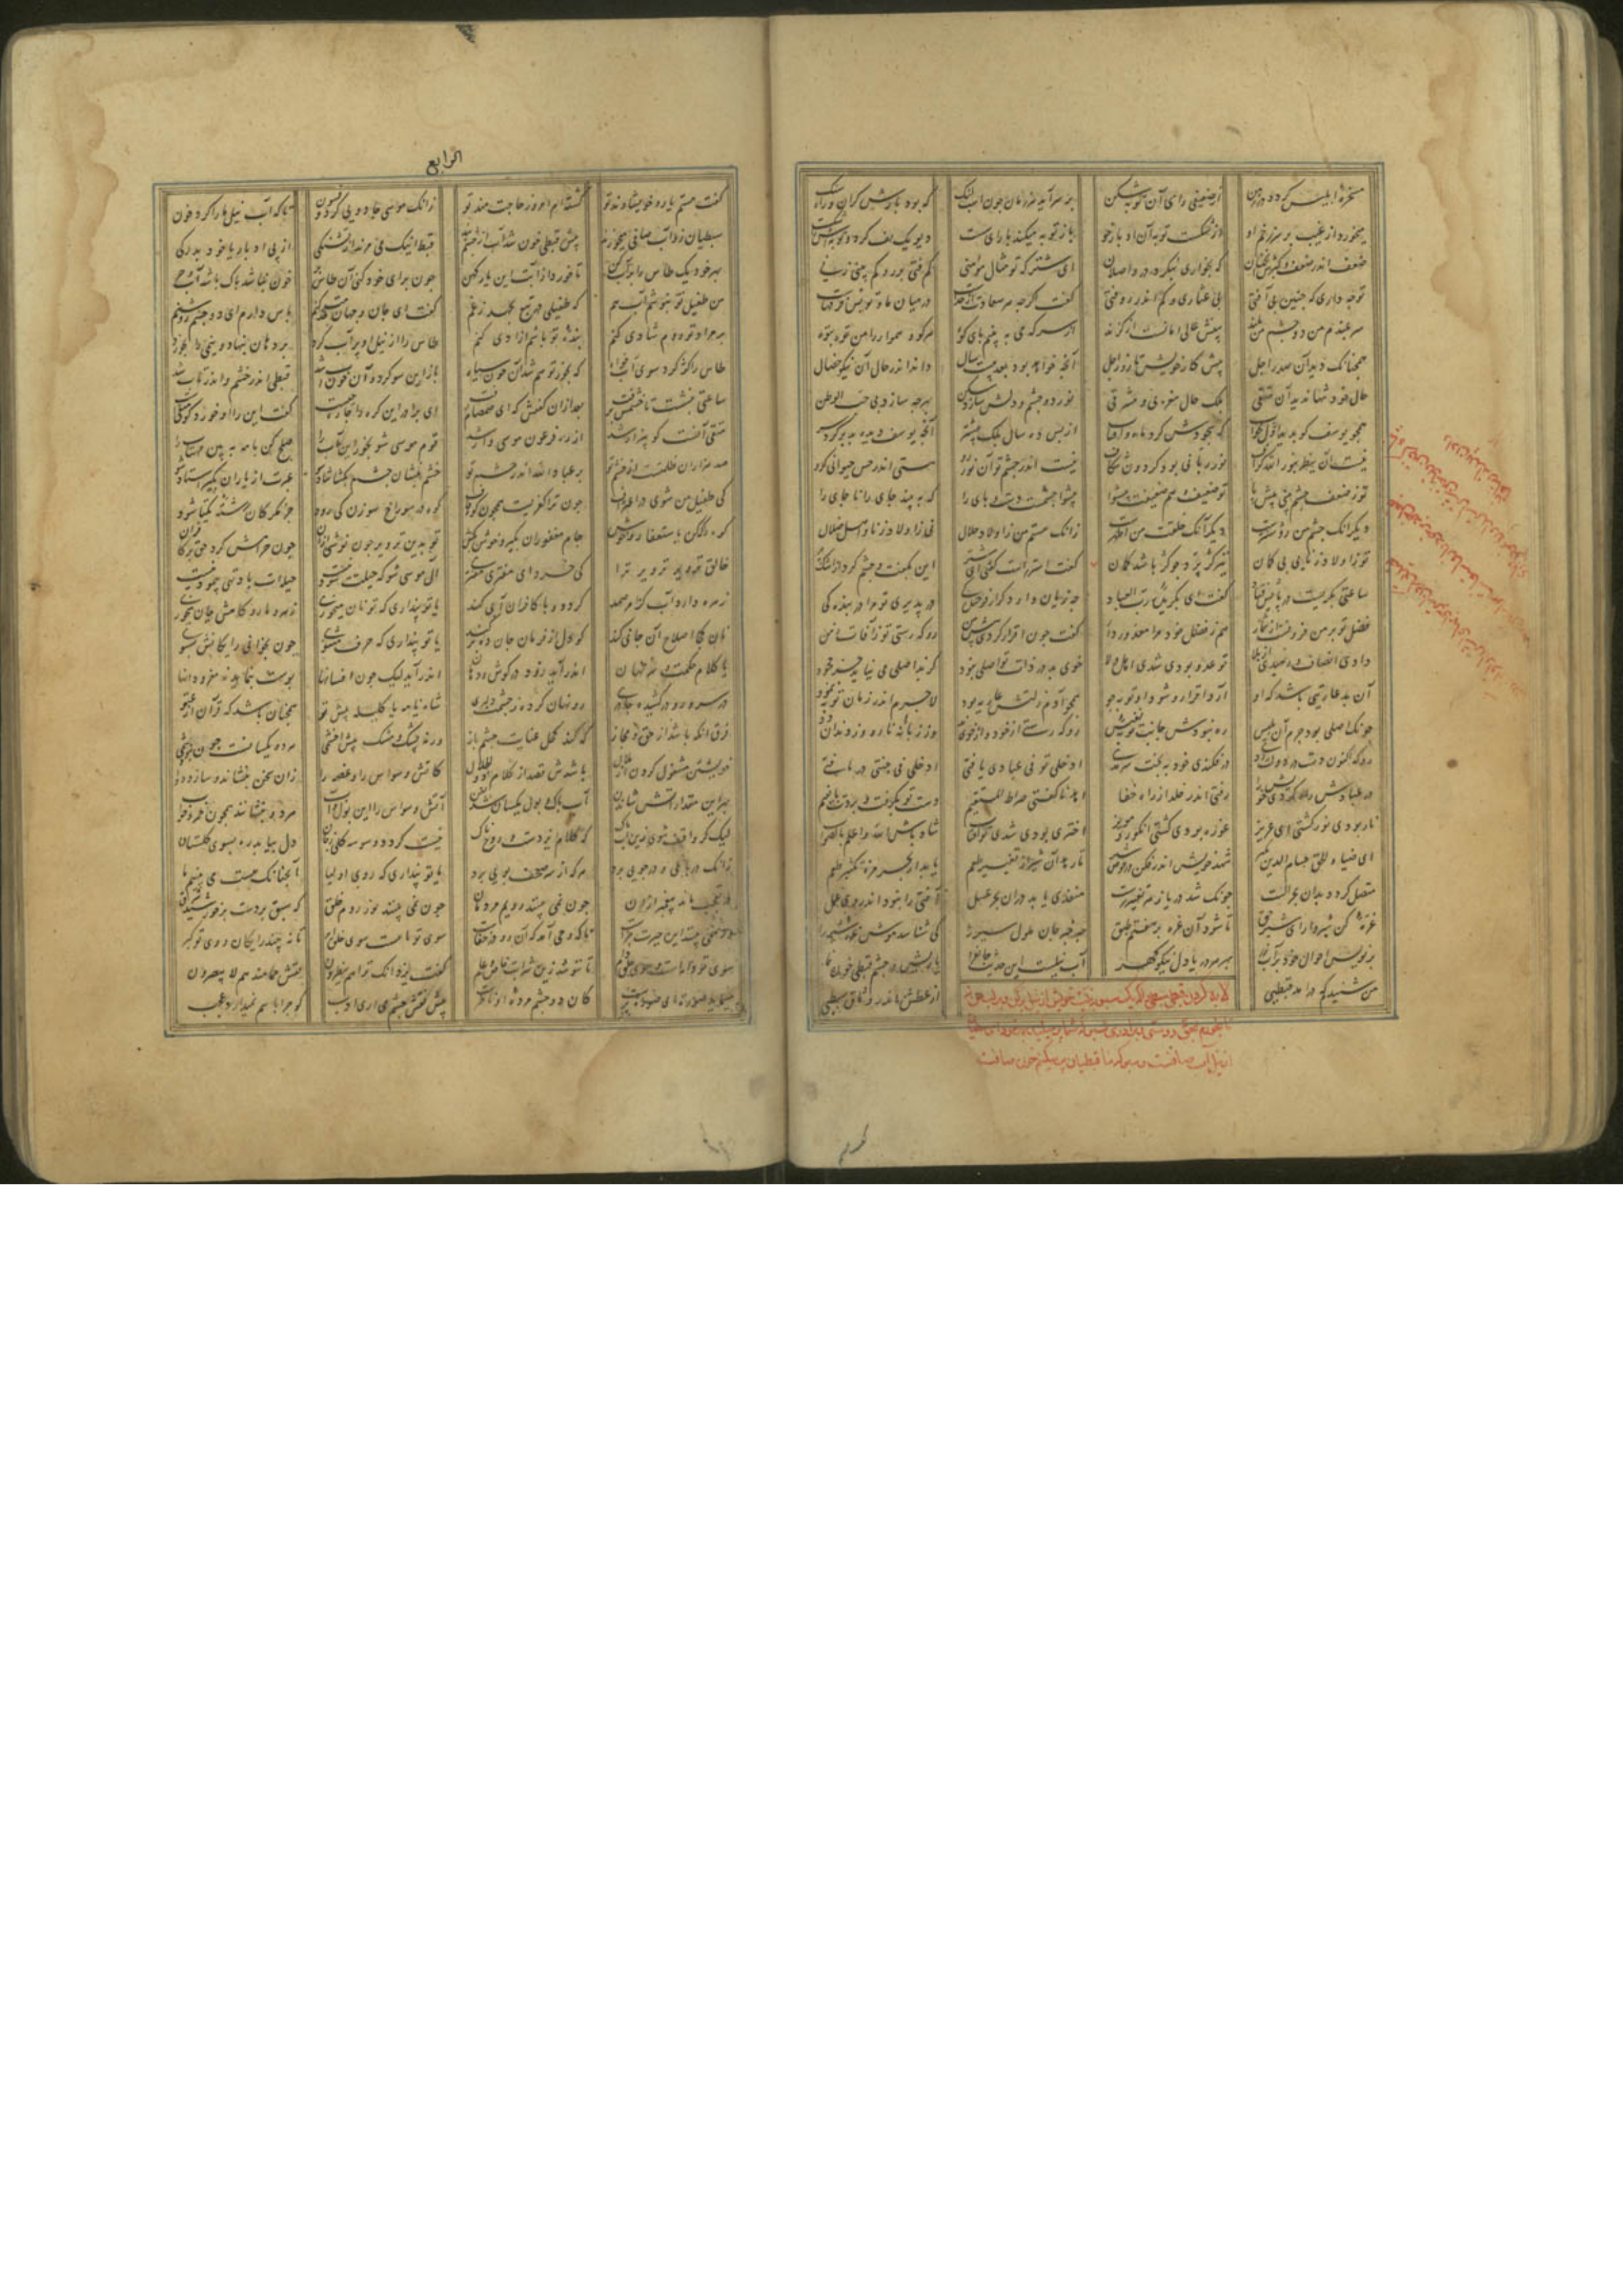 مسخرهٔ ابلیس کردد در زمن از ضعیفی رای آن توبه شکن در سر آید هر زمان چون اسب لنک که بود بارش کران و راه سنک
میخورد از غیب بر سر زخم او از شکست توبه آن ادبارجو باز توبه میکند با رای سست دیو یک تف کرد و توبش شکست
ضعف اندر ضعف و کبرش آنچنان که بخواری بنکرد در واصلان ای شتر که تو مثال مؤمنی کم فتی بر رو و کم بینی زنی
تو چه داری که چنین بی آفتی بی عثاری و کم اندر رو فتی کفت کرچه هر سعادت از خداست در میان ما و تو بس فرقهاست
سر بلندم من دو چشم من بلند بینش عالی امانست از کزند از سر که می ببینم پای کوه هر کو و هموار را من توه توه
همچنانک دید آن صدر اجل پیش کار خویش تا روز اجل آنچه خواهد بود بعد بیست سال داند اندر حال آن نیکو خصال
حال خود تنها ندید آن متقی بلک حال مغربی و مشرقی نور در چشم و دلش سازد سکن بهر چه سازد پی حب الوطن
همچو یوسف کو بدید اول بخواب که سجودش کرد ماه و آفتاب از پس ده سال بلک بیشتر آنچه یوسف دیده بد بر کرد سر
نیست آن ینظر بنور الله کزاف نور ربانی بود کردون شکاف نیست اندر چشم تو آن نور رو هستی اندر حس حیوانی کرو
تو ز ضعف چشم بینی پیش پا تو ضعیف و هم ضعیفت پیشوا پیشوا چشمست دست و پای را که ببیند جای را ناجای را
دیکر آنک چشم من روشنترست دیکر آنک خلقت من اطهرست زانک هستم من ز اولاد حلال نی ز اولاد زنا و اهل ضلال
تو ز اولاد زنایی بی کمان تیر کژ پرد چو کژ باشد کمان کفت استر راست کفتی ای شتر این بکفت و چشم کرد از اشک پر
ساعتی بکریست در پایش فتاد کفت ای بکزیده رب العباد چه زیان دارد کر از فرخندکی در پذیری تو مرا در بندکی
فضل تو بر من فزونست از شمار هم ز فضل خود مرا معذور دار کفت چون اقرار کردی پیش من رو که رستی تو ز آفات زمن
دادی انصاف و رهیدی از بلا تو عدو بودی شدی ز اهل ولا خوی بد در ذات تو اصلی نبود کز بد اصلی می نیاید جز جحود
آن بد عاریتی باشد که او آرد اقرار و شود او توبه جو همچو آدم زلتش عاریه بود لاجرم اندر زمان توبه نمود
چونک اصلی بود جرم آن بلیس ره نبودش جانب توبه نفیس رو که رستی از خود و از خوی بد وز زبانه نار و از دندان دد
رو که اکنون دست در دولت زدی در فکندی خود به بخت سرمدی ادخلی تو فی عبادی یافتی ادخلی فی جنتی در یافتی
در عبادش راه کردی خویش را رفتی اندر خلد از راه خفا اهدنا کفتی صراط المستقیم دست تو بکرفت و بردت تا نعیم
نار بودی نور کشتی ای عزیز غوره بودی کشتی انکور و مویز اختری بودی شدی تو آفتاب شاد باش الله اعلم بالصواب
ای ضیاء الحق حسام الدین بکیر شهد خویش اندر فکن در حوض شیر تا رهد آن شیر از تغییر طعم یابد از بحر مزه تکثیر طعم
متصل کردد بدان بحر الست چونک شد دریا ز هر تغییر رست منفذی یابد در آن بحر عسل آفتی را نبود اندر وی عمل
غرهٔ کن شیروار ای شیر حق تا شود آن غره بر هفتم طبق چه خبر جان ملول سیر را کی شناسد موش غره شیر را
برنویس احوال خود بر آب زر بهر هر دریا دل نیکو کهر آب نیلست این حدیث جان فزا یا ربش در چشم قبطی خون نما
من شنیدم که درآمد قبطیی از عطش اندر وثاق سبطیی
لابه کردن قبطی سبطی را که یک سبو بنیت خویش از نیل پر کن
الرابع
کفت هستم یار و خویشاوند تو کشته ام امروز حاجتمند تو زانک موسی جادویی کرد و فسون تا که آب نیل ما را کرد خون
سبطیان زو آب صافی میخورند پیش قبطی خون شد آب از چشم بند قبط اینک می مرند از تشنکی از پی ادبار یا خود بدرکی
بهر خود یک طاس را پر آب کن تا خورد از آبت این یار کهن چون برای خود کنی آن طاس پر خون نباشد آب باشد پاک و حر
من طفیل تو بنوشم آب هم که طفیلی در تبع بجهد ز غم کفت ای جان و جهان خدمت کنم پاس دارم ای دو چشم روشنم
بر مراد تو روم شادی کنم بنده تو باشم آزادی کنم طاس را از نیل او پر آب کرد بر دهان بنهاد و نیمی را بخورد
طاس را کژ کرد سوی آب خواه که بخور تو هم شد آن خون سیاه باز ازین سو کرد آن خون آب شد قبطی اندر خشم و اندر تاب شد
ساعتی بنشست تا خشمش برفت بعد ازان کفتش که ای صمصام زفت ای برادر این کره را چاره چیست کفت این را او خورد کو متقیست
متقی آنست کو بیزار شد از ره فرعون موسی وار شد قوم موسی شو بخور این آب را صلح کن با مه ببین مهتاب را
صد هزاران ظلمتست از خشم تو بر عباد الله اندر چشم تو خشم بنشان چشم بکشا شاد شو عبرت از یاران بکیر استاد شو
کی طفیل من شوی در اغتراف چون ترا کفریست همچون کوه قاف کوه در سوراخ سوزن کی رود جز مکر کان رشته یکتا شود
کوه را که کن باستغفار و خوش جام مغفوران بکیر و خوش بکش تو بدین تزویر چون نوشی ازان چون حرامش کرد حق بر کافران
خالق تزویر تزویر ترا کی خرد ای مفتری مفترا آل موسی شو که حیلت سود نیست حیله ات باد تهی پیمودنیست
زهره دارد آب کز امر صمد کردد و با کافران آبی کند یا تو پنداری که تو نان میخوری زهر مار و کاهش جان میخوری
نان کجا اصلاح آن جانی کند کو دل از فرمان جانان برکند یا تو پنداری که حرف مثنوی چون بخوانی رایکانش بشنوی
یا کلام حکمت و سر نهان اندر آید زود در کوش و دهان اندر آید لیک چون افسانها پوست بنماید نه مغز دانها
در سر و رو در کشیده چادری رو نهان کرده ز چشمت دلبری شاه نامه یا کلیله پیش تو همچنان باشد که قرآن از عتو
فرق آنکه باشد از حق و مجاز که کند کحل عنایت چشم باز ورنه پشک و مشک پیش اخشمی هر دو یکسانست چون نبود شمی
خویشتن مشغول کردن از ملال باشدش قصد از کلام ذوالجلال کاتش وسواس را و غصه را زان سخن بنشاند و سازد دوا
بهر این مقدار آتش شاندن آب پاک و بول یکسان شد بفن آتش وسواس را این بول و آب هر دو بنشانند همچون خمر و خواب
لیک کر واقف شوی زین آب پاک که کلام ایزدست و روحناک نیست کردد وسوسه کلی ز جان دل بیابد ره بسوی کلستان
زانک در باغی و در جویی برد هر که از سر صحف بویی برد یا تو پنداری که روی اولیا آنچنانک هست می بینیم ما
در تعجب مانده پیغمبر ازان چون نمی بینند رویم مردمان چون نمی بینند نور روم خلق که سبق بردست بر خورشید شرق
ور همی بینند این حیرت چراست تا که وحی آمد که آن رو در خفاست سوی تو ماهست سوی خلق ابر تا نبیند رایکان روی تو کبر
سوی تو دانه است سوی خلق دام تا ننوشد زین شراب خاص عام کفت یزدان که تراهم ینظرون نقش حمامند هم لا یبصرون
مینماید صورت ای صورت پرست کان دو چشم مرده او ناظرست پیش نقش چشم می آری ادب کو چرا پاسم نمیدارد عجب